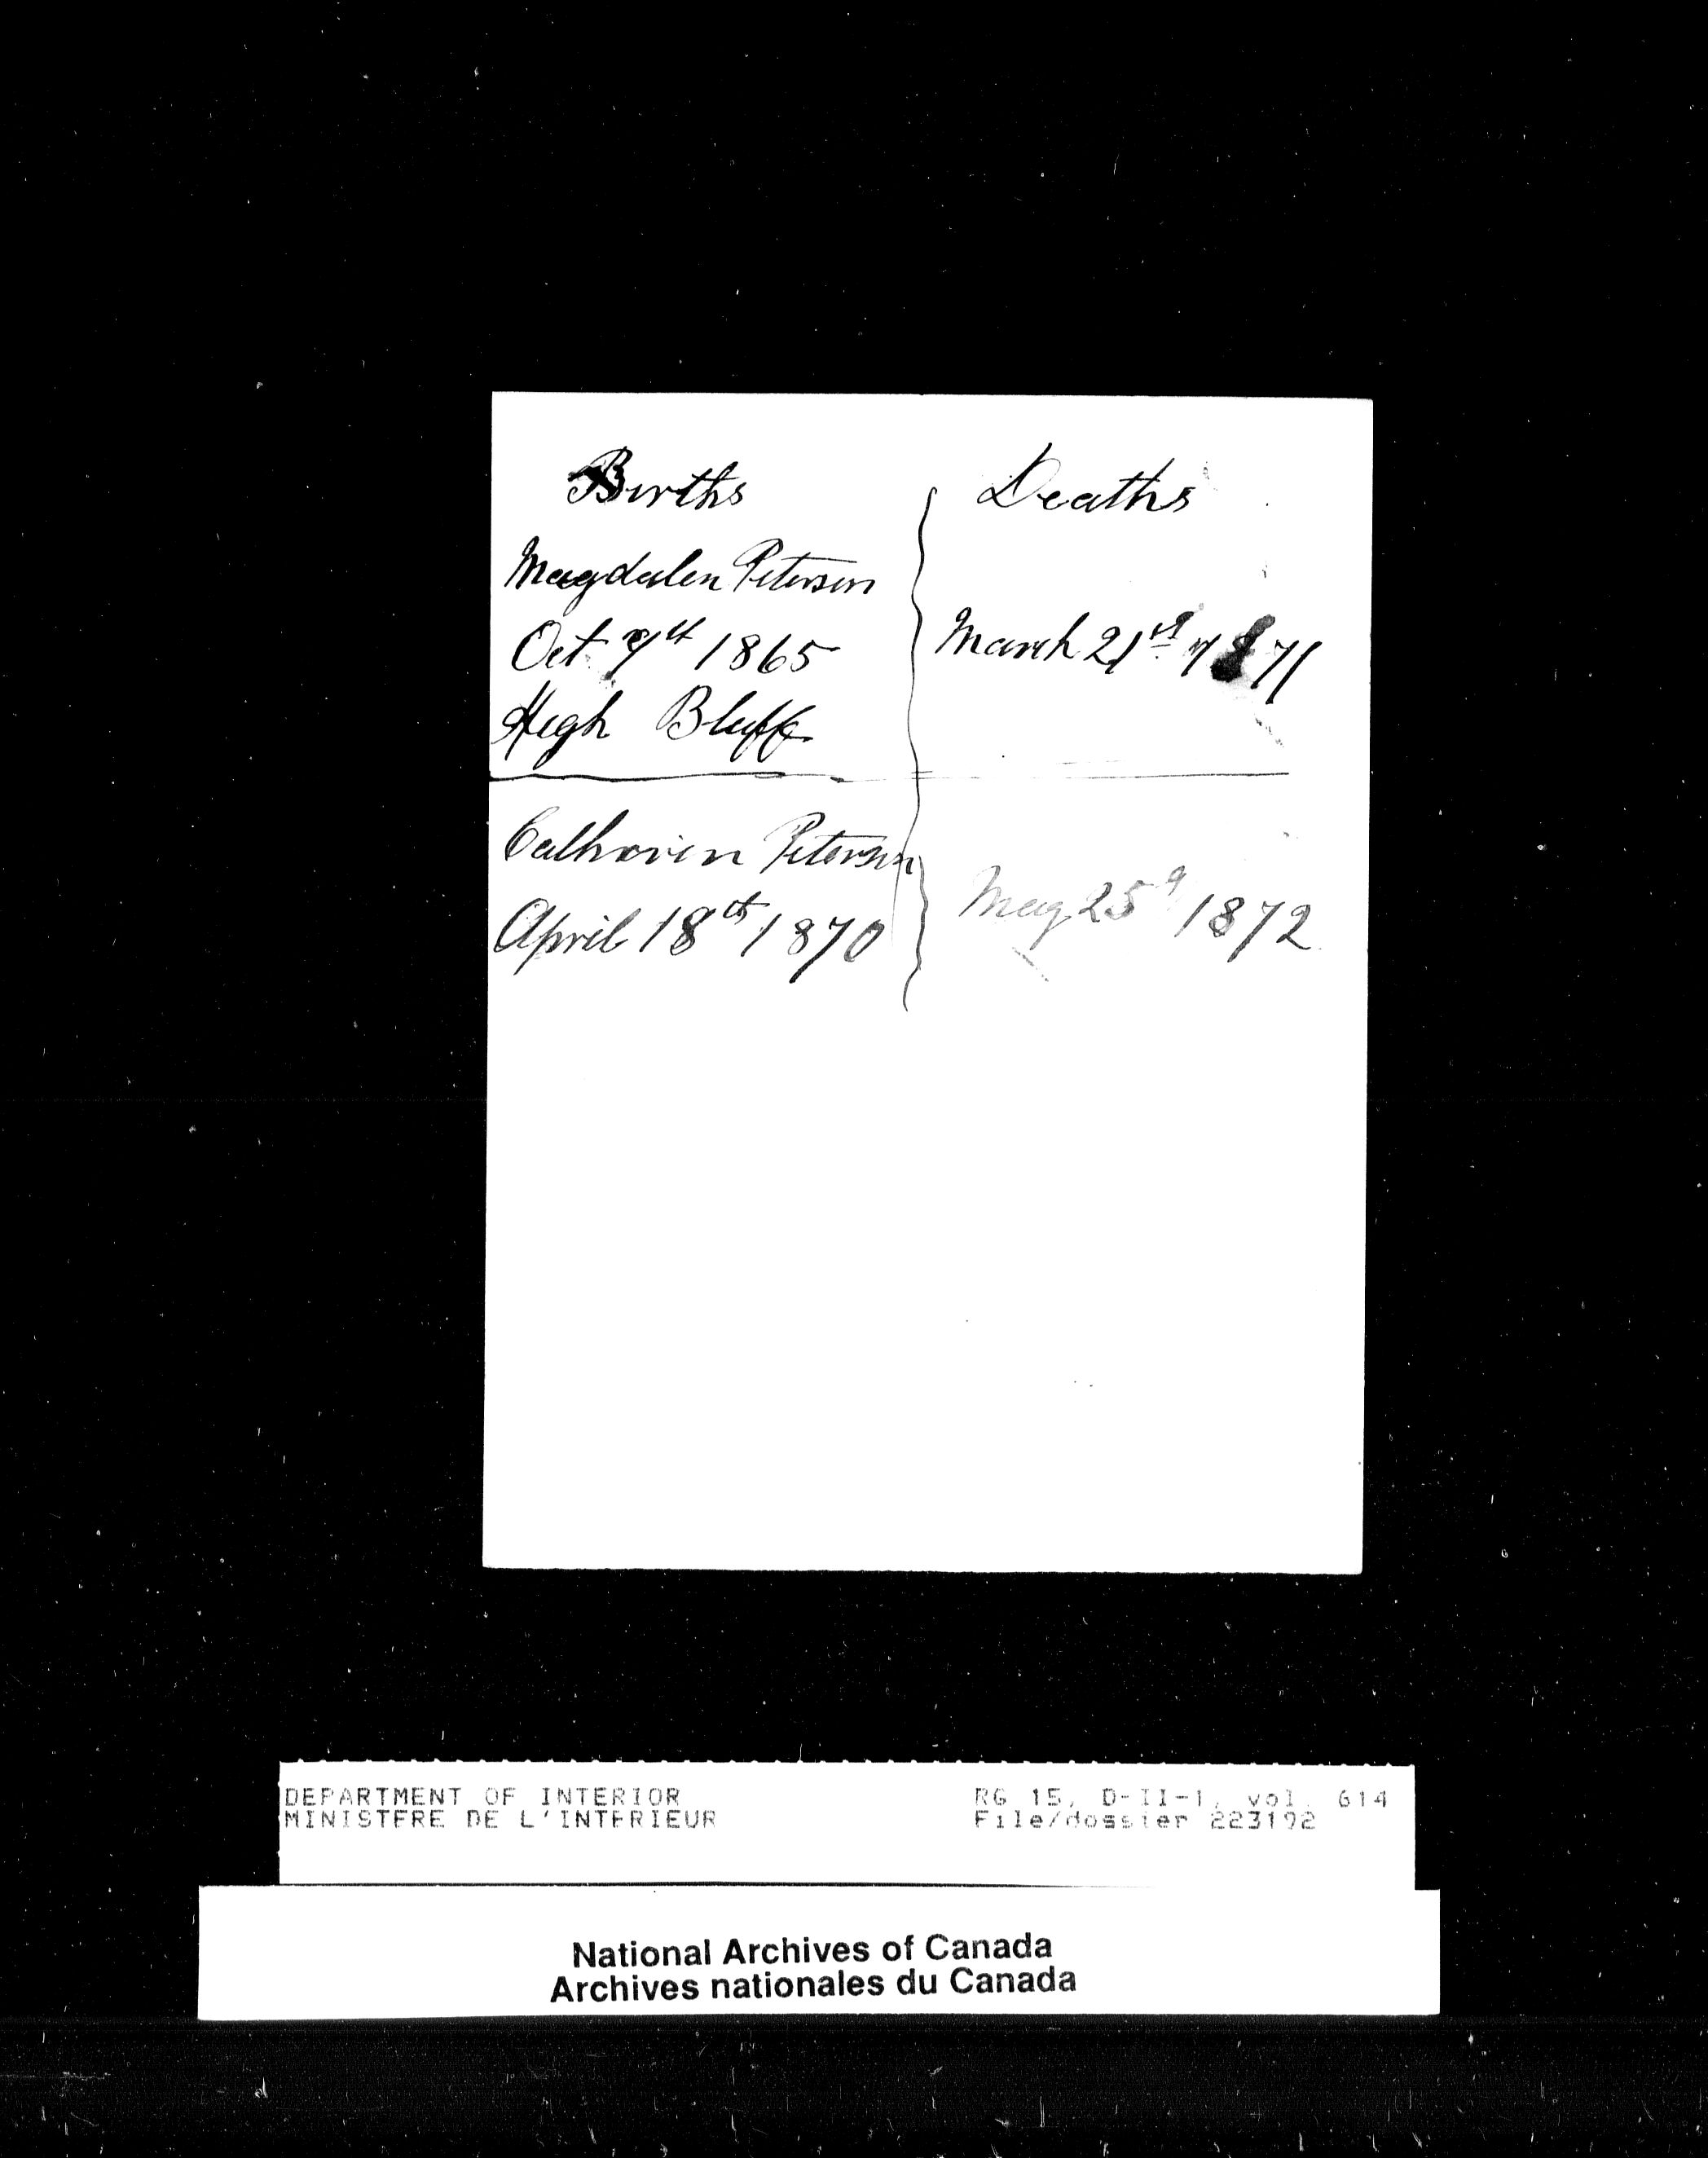 Births
Deaths
Magdalen Petersen
Oct 7th 1865
March 21st 1871
High Bluff
Catherin Petersen
April 18th 1870
May 25 1872
DEPARTMENT OF INTERIOR
MINISTERE DE L'INTERIEUR
RG 15, D-II-1, vol. 614
File/dossier 223192
National Archives of Canada
Archives nationales du Canada